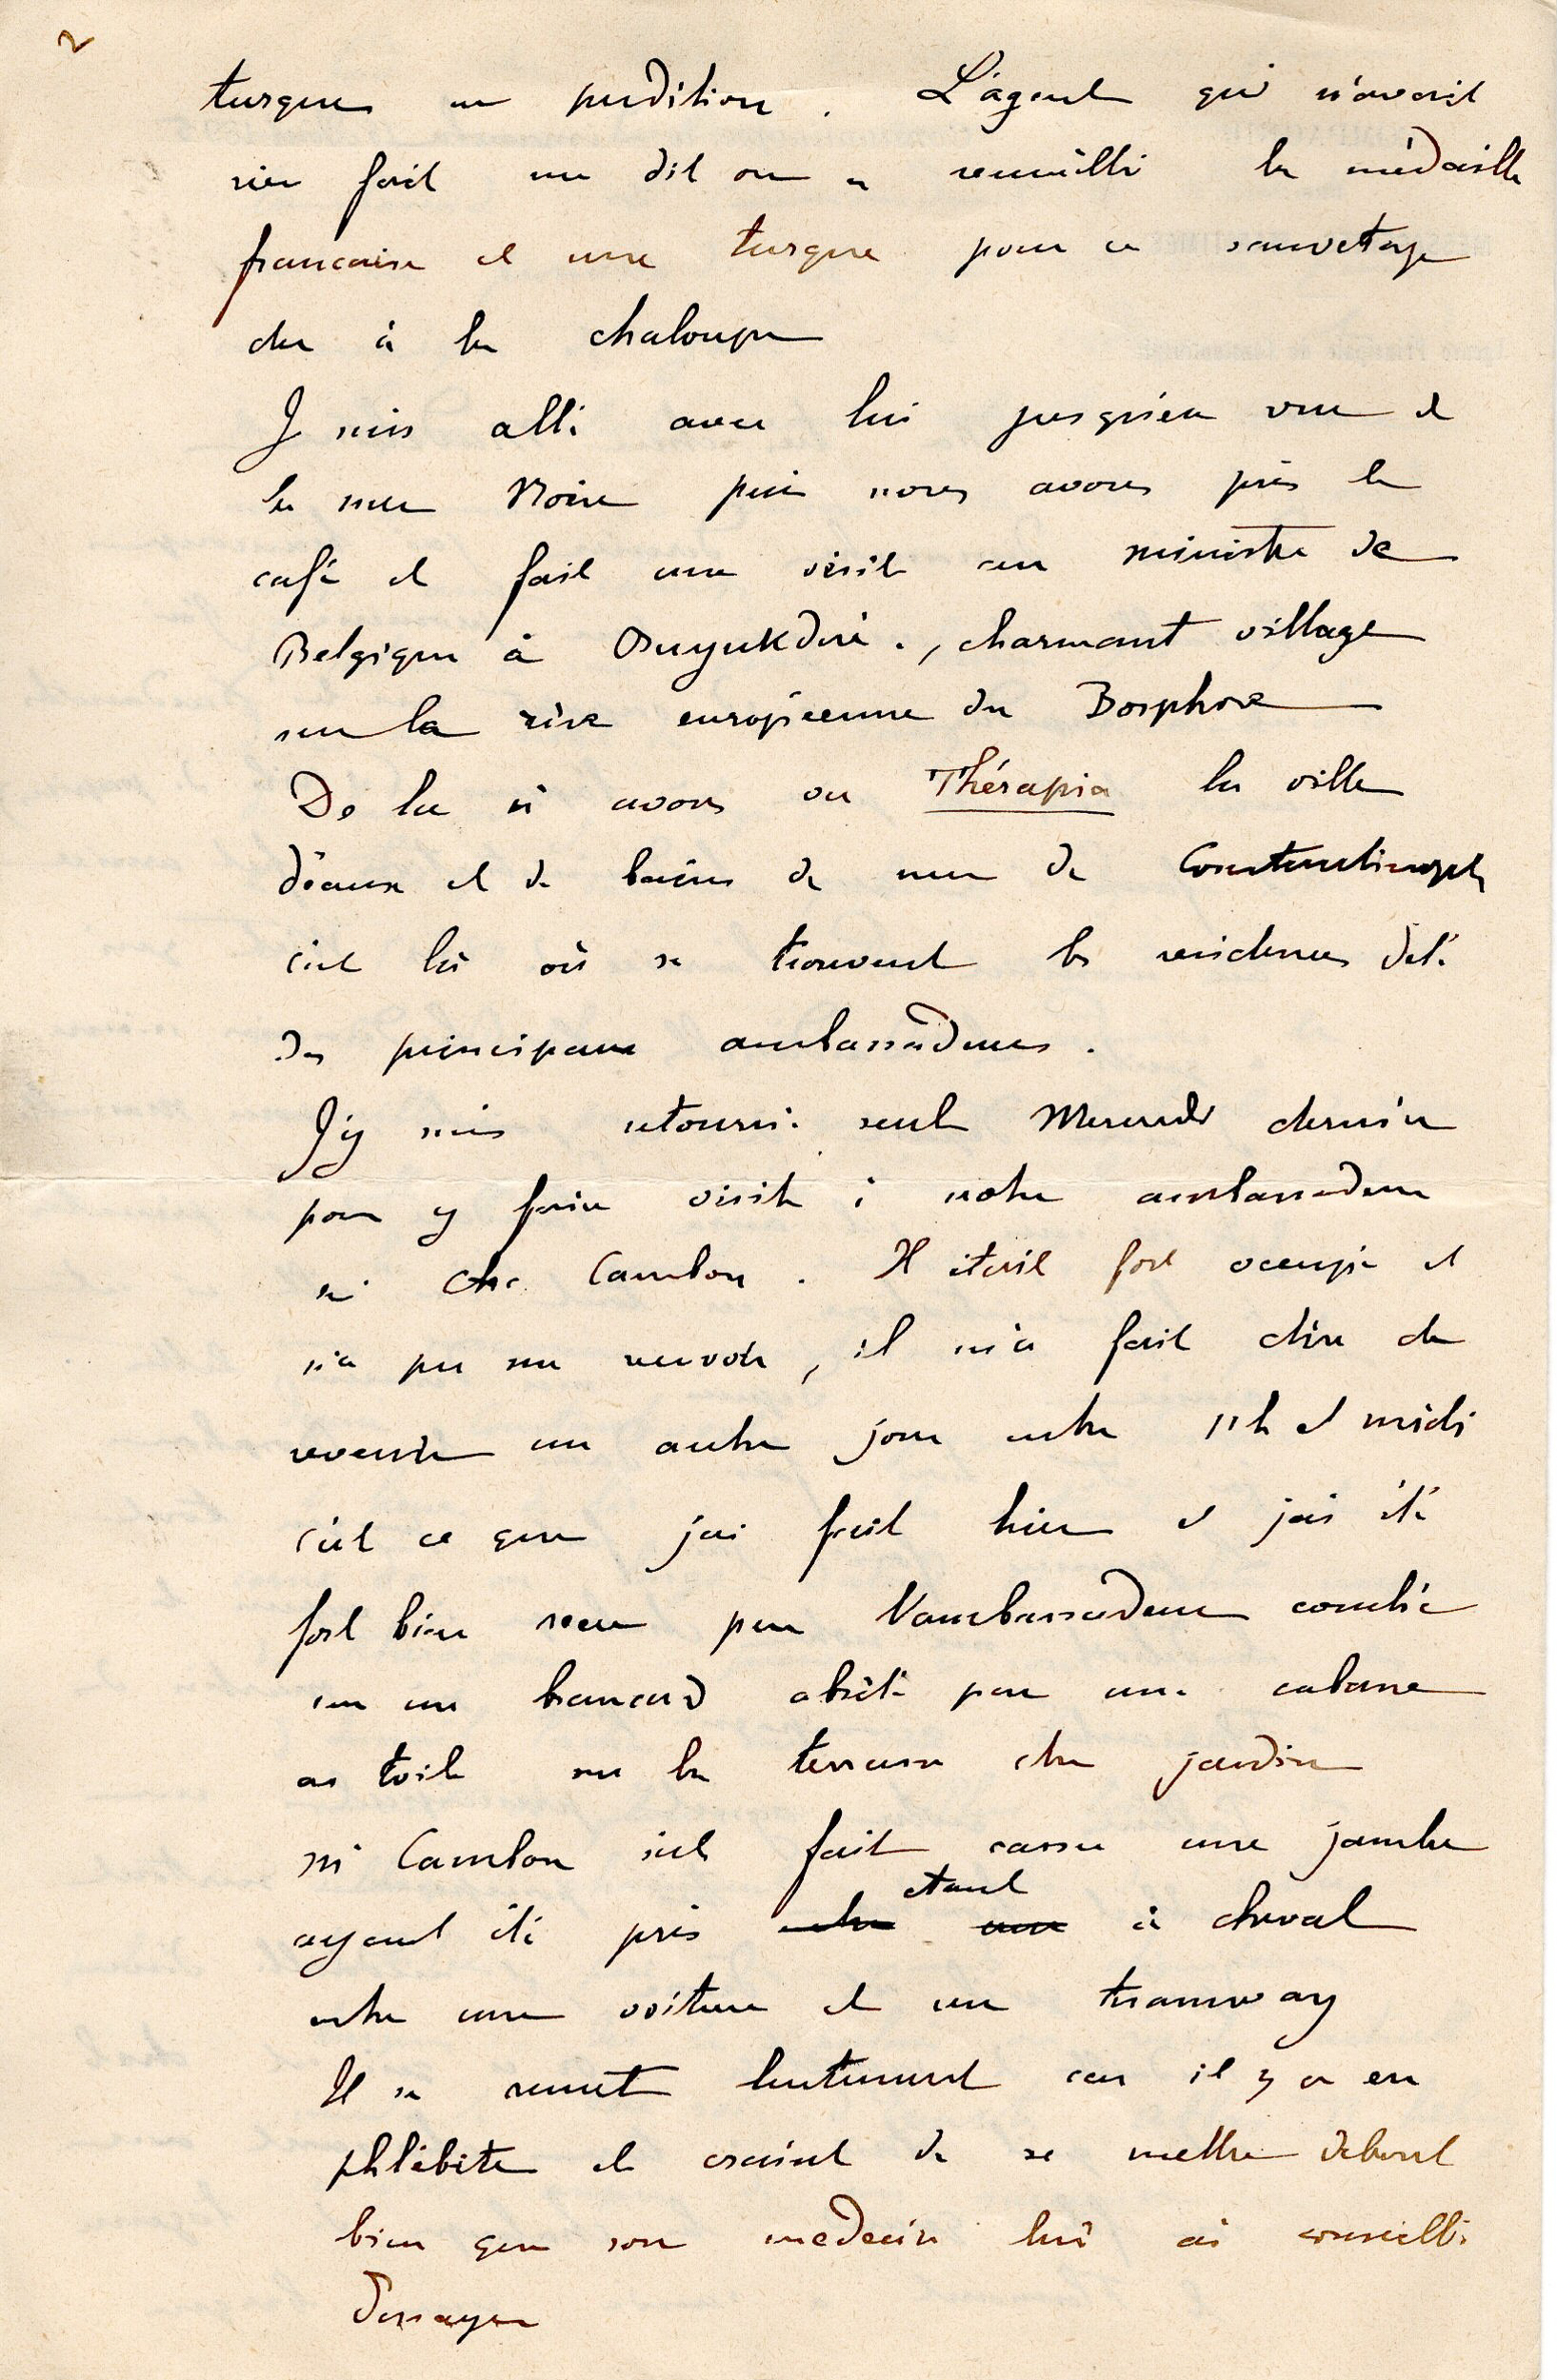 2
turques en perdition. L'agent qui n'avait
rien fait me dit on a recueilli la médaille
francaise et une turque pour ce sauvetage
du à la chaloupe
Je suis allé avec lui jusqu'en vue de
la mer Noire puis nous avons pris le
café et fait une visite au ministre de
Belgique à Buyukdéré., charmant village
sur la rive européenne du Bosphore
De la n avons vu Thérapia la ville
d'eaux et de bains de mer de Constantinople
c'est là où se trouvent les residences d'été
des principaux ambassadeurs.
J'y suis retourné seul Mercredi dernier
pour y faire visite à notre ambassadeur
mr Cambon. Il était fort occupé et
n'a pu me recevoir, il m'a fait dire de
revenir un autre jour entre 11h et midi
c'est ce que j'ai fait hier et j'ai été
fort bien recu par l'ambassadeur couché
sur un brancard abrité par une cabane
en toile sur la terrasse du jardin
mr Cambon s'est fait casser une jambe
ayant été pris etant à cheval
entre une voiture et un tramway
Il se remet lentement car il y a eu
phlébite et craint de se mettre debout
bien que son medecin lui ai conseillé
d'essayer